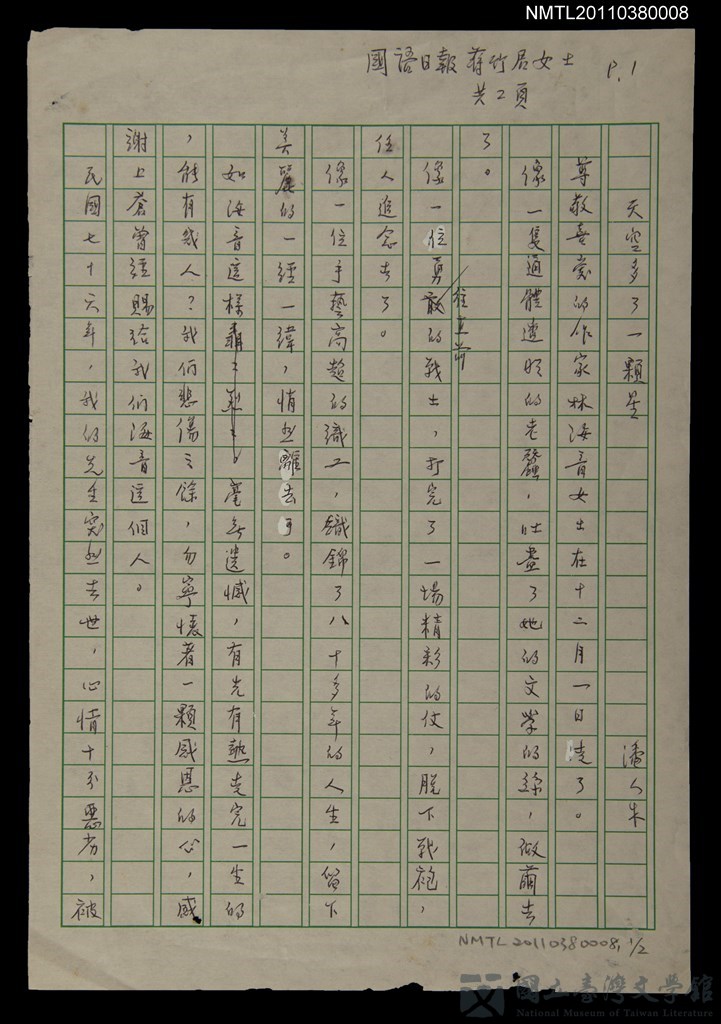 NMTL20110380008
國語日報 蔣竹君女士 P.1
共2頁
天空多了一顆星 潘人木
尊敬喜愛的作家林海音女士在十二月一日走了。
像一隻通體透明的老蠶,吐盡了她的文學的絲,做繭去
了。
像一位勇往直前的戰士,打完了一場精彩的仗,脫下戰袍,
任人追念去了。
像一位手藝高超的織工,織錦了八十多年的人生,留下
美麗的一經一緯,悄然離去了。
如海音這樣轟轟烈烈。毫無遺憾,有光有熱走完一生的
,能有幾人?我們悲傷之餘,勿寧懷著一顆感恩的心,感
謝上蒼曾經賜給我們海音這個人。
民國七十六年,我的先生突然去世,心情十分惡劣,被
NMTL20110380008, 1/2
國立臺灣文學館
National Museum of Taiwan Literature